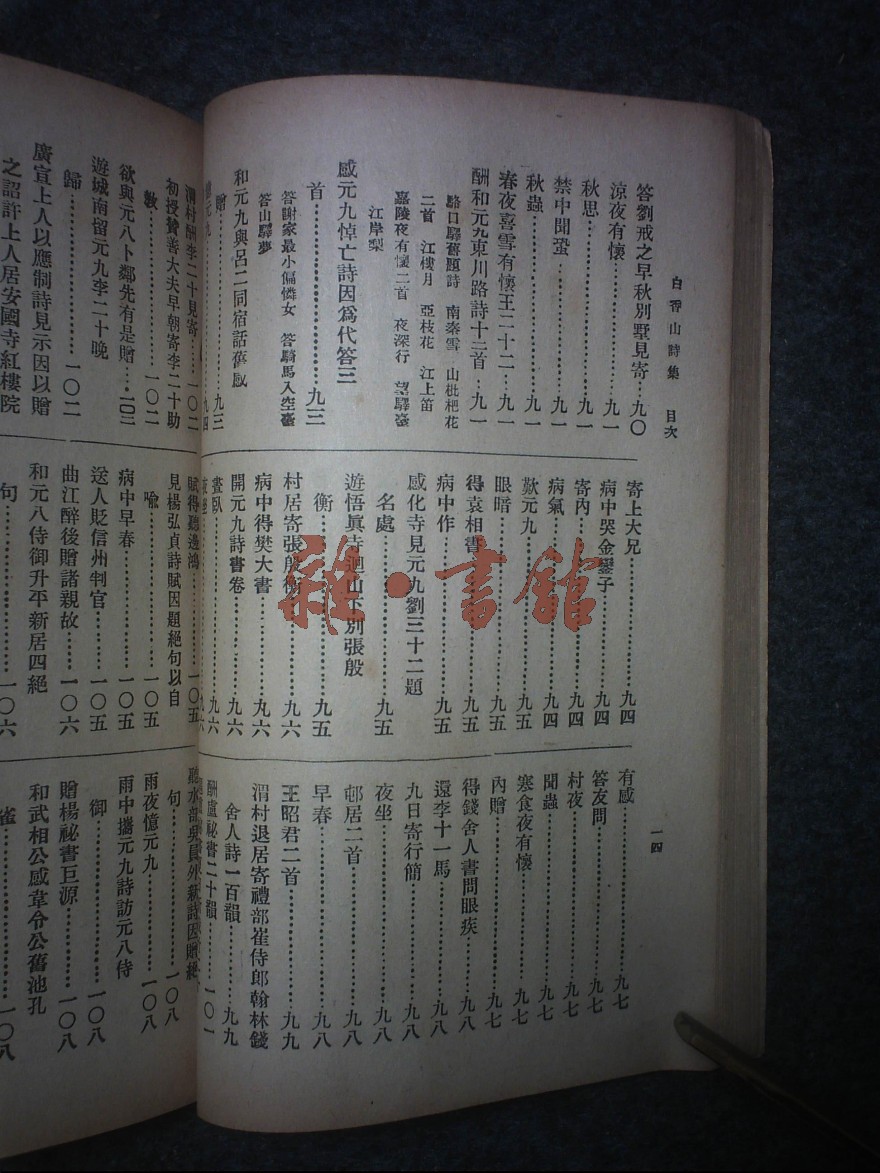 白香山詩集 目次
一四
答劉戒之早秋別墅見寄…九〇
涼夜有懷…九一
秋思…九一
禁中聞蛩…九一
秋蟲…九一
春夜喜雪有懷王二十二…九一
酬和元九東川路詩十二首…九一
駱口驛舊題詩 南秦雪 山枇杷花
二首 江樓月 亞枝花 江上笛
嘉陵夜有懷二首 夜深行 望驛臺
江岸梨
感元九悼亡詩因爲代答三
首…九三
答謝家最小偏憐女 答騎馬入空臺
答山驛夢
和元九與呂二同宿話舊感
贈…九三
寄上大兄…九四
病中哭金鑾子…九四
寄內…九四
病氣…九四
歎元九…九五
眼暗…九五
得袁相書…九五
病中作…九五
感化寺見元九劉三十二題
名處…九五
遊悟眞寺迴山下別張殷
衡…九五
村居寄張殷衡…九六
病中得樊大書…九六
開元九詩書卷…九六
晝臥…九六
有感…九七
答友問…九七
村夜…九七
聞蟲…九七
寒食夜有懷…九七
內贈…九七
得錢舍人書問眼疾…九八
還李十一馬…九八
九日寄行簡…九八
夜坐…九八
邨居二首…九八
早春…九八
王昭君二首…九九
渭村退居寄禮部崔侍郎翰林錢
舍人詩一百韻…九九
酬盧祕書二十韻…一〇一
渭村酬李二十見寄…一〇二
初授贊善大夫早朝寄李二十助
教…一〇二
欲與元八卜鄰先有是贈…一〇二
遊城南留元九李二十晚
歸…一〇二
廣宣上人以應制詩見示因以贈
之詔許上人居安國寺紅樓院
賦得聽邊鴻…一〇五
見楊弘貞詩賦因題絕句以自
喩…一〇五
病中早春…一〇五
送人貶信州判官…一〇五
曲江醉後贈諸親故…一〇六
和元八侍御升平新居四絕
句…一〇六
聽水部吳員外新詩因贈絕
句…一〇八
雨夜憶元九…一〇八
雨中攜元九詩訪元八侍
御…一〇八
贈楊祕書巨源…一〇八
和武相公感韋令公舊池孔
雀…一〇八
雜·書館